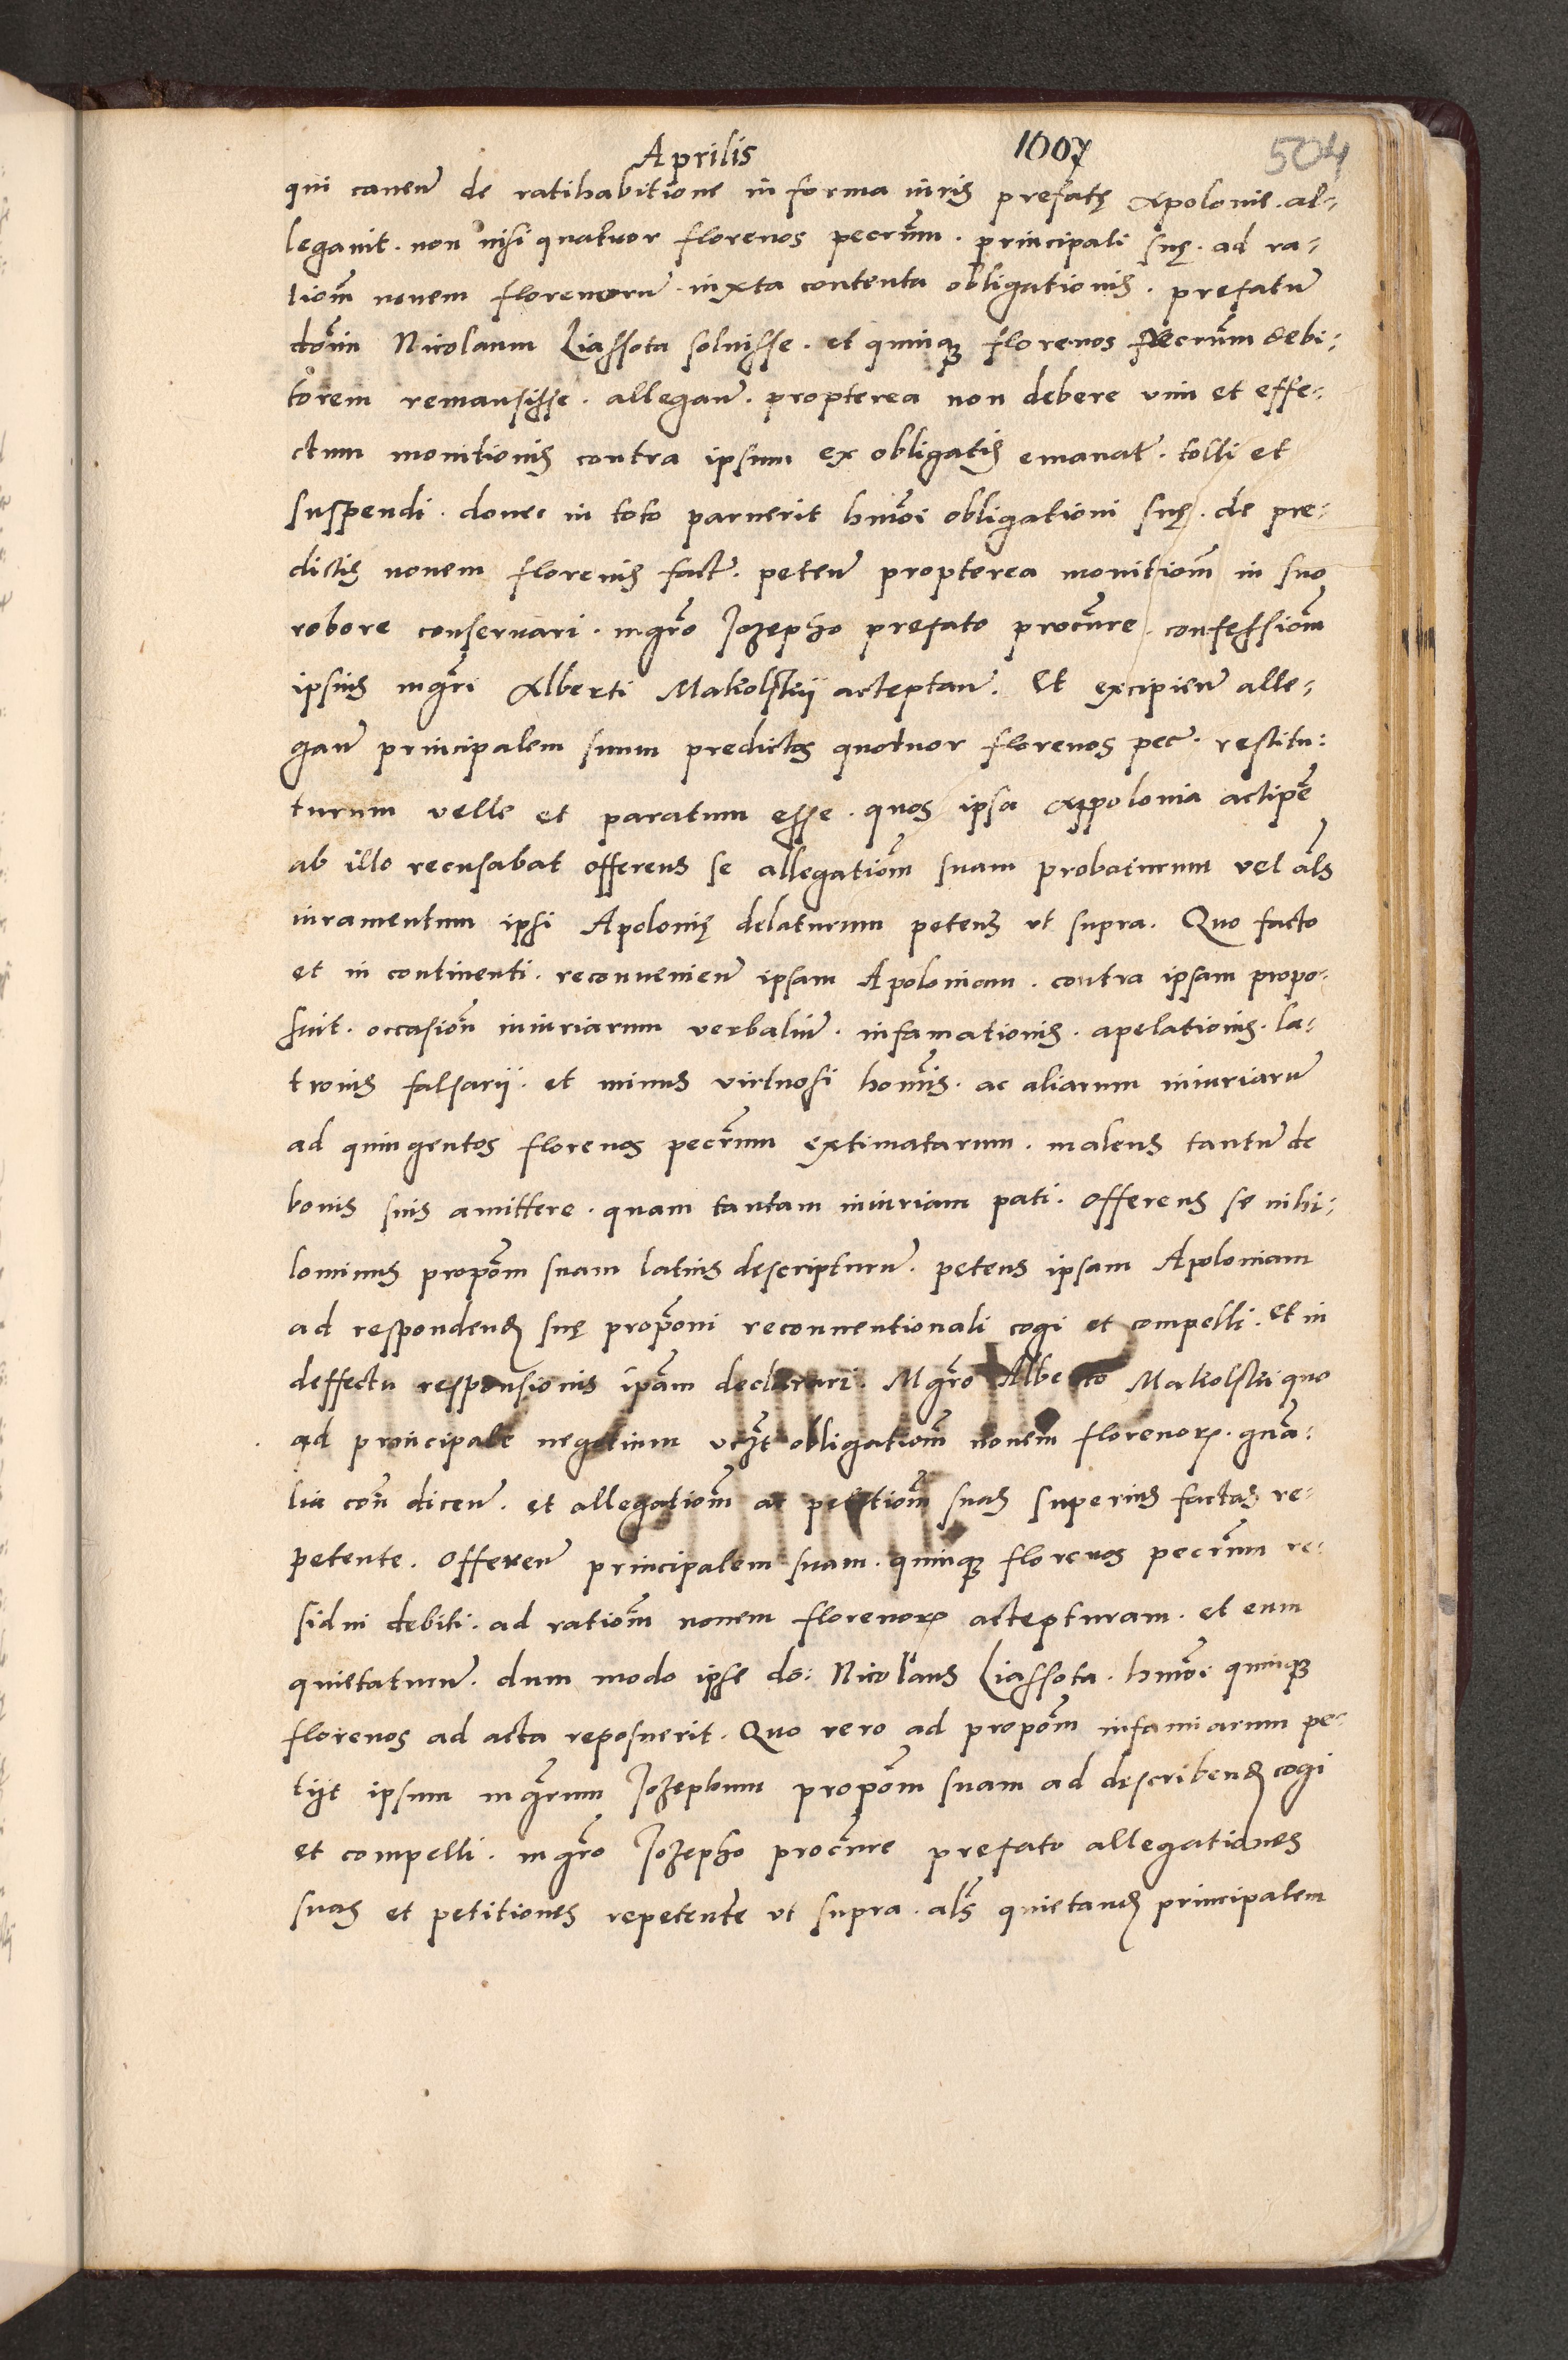 Aprilis 1007 504
qui cauen̄ de ratihabitione in forma iuris prefatę Apolonie. al-
legauit. non nisi quatuor florenos pecun̄. principali suę. ad ra-
tiom̄ nouem florenorū. iuxta contenta obligationis. prefatū
dom̄ Nicolaum Liassota soluisse. et quinqꝫ florenos pecun̄ debi-
torem remansisse. allegan̄. propterea non debere vim et effe-
ctum monitionis contra ipsum ex obligatis emanat̄. tolli et
suspendi. donec in toto paruerit hmōi obligationi suę. de pre-
dictis nouem florenis fact̄. peten̄ propterea monitiom̄ in suo
robore conseruari. mgr̄o Jozepho prefato procur̄e. confessiom̄
ipsius mgr̄i Alberti Makolskij acceptan̄. Et excipien̄ alle-
gan̄ principalem suum predictos quotuor florenos pec̄. restitu:
turum velle et paratum esse. quos ipsa Appolonia accipē
ab illo recusabat offerens se allegatiom̄ suam probaturum vel al̄s
iuramentum ipsi Apolonię delaturum petens vt supra. Quo facto
et in continenti. reconuenien̄ ipsam Apoloniam. contra ipsam propo-
suit. occasiōn iniuriarum verbaliū. infamationis. apelationis. la-
tronis falsarij. et minus virtuosi hom̄is. ac aliarum iniuriarū
ad quingentos florenos pecun̄ extimatarum. malens tantū de
bonis suis amittere. quam tantam iniuriam pati. offerens se nihi-
lominus propōm suam latius descripturū. petens ipsam Apoloniam
ad respondendꝫ suę propōni reconuentionali cogi et compelli. Et in
deffectu responsionis ip̄am declarari. Mgr̄o Alberto Makolski quo
ad principale negotium vcꝫt obligatiom̄ nouem florenorꝫ. gn̄a-
lia con̄ dicen̄. et allegatiom̄ ac petitiom̄ suas superius factas re-
petente. Offeren̄ principalem suam. quinqꝫ florenos pecun̄ re-
sidui debiti. ad ratiom̄ nouem florenorꝫ accepturam. et eum
quietaturū. dum modo ipse do: Nicolaus Liassota. hmōi quinqꝫ
florenos ad acta reposuerit. Quo vero ad propōm infamiarum pe-
tijt ipsum mgr̄um Jozephum propōm suam ad describendꝫ cogi
et compelli. mgr̄o Jozepho procur̄e prefato allegationes
suas et petitiones repetente vt supra. al̄s quietandꝫ principalem